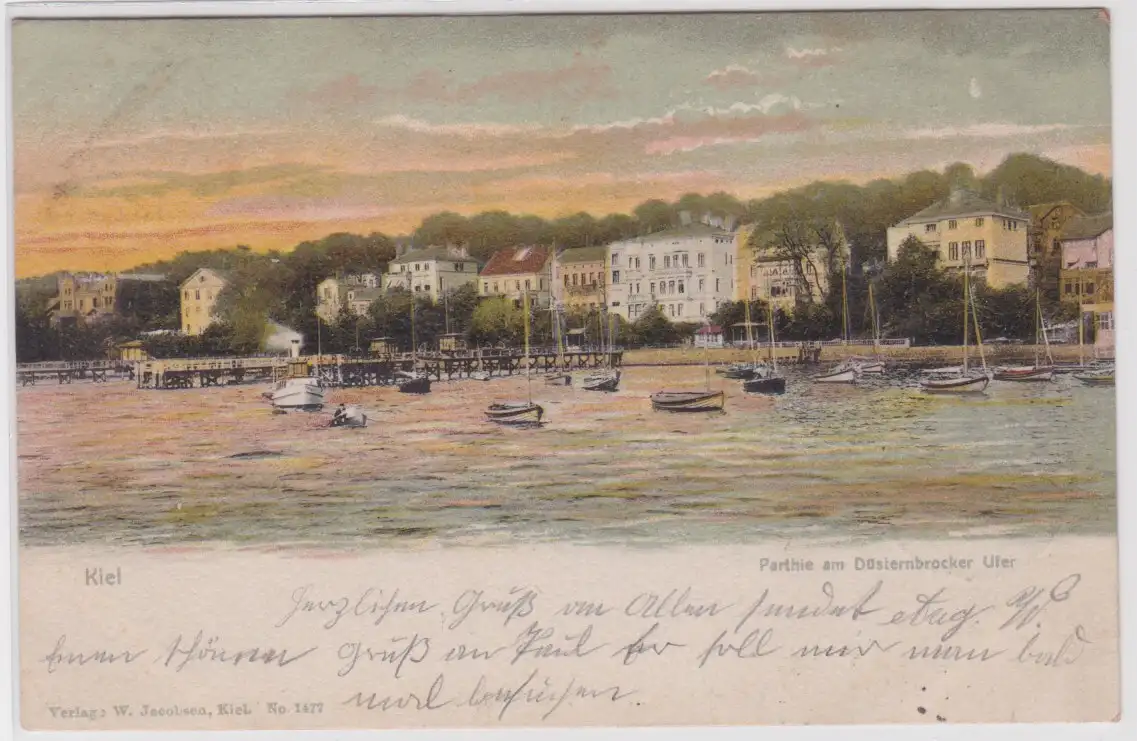 Kiel
Parthie am Düsternbrocker Ufer
Herzlichen Gruß an Allen sendet Aug.
Einen schönen Gruß an Paul Er soll mir man bald
mal besuchen.
Verlag: W. Jacobsen, Kiel. No. 1477